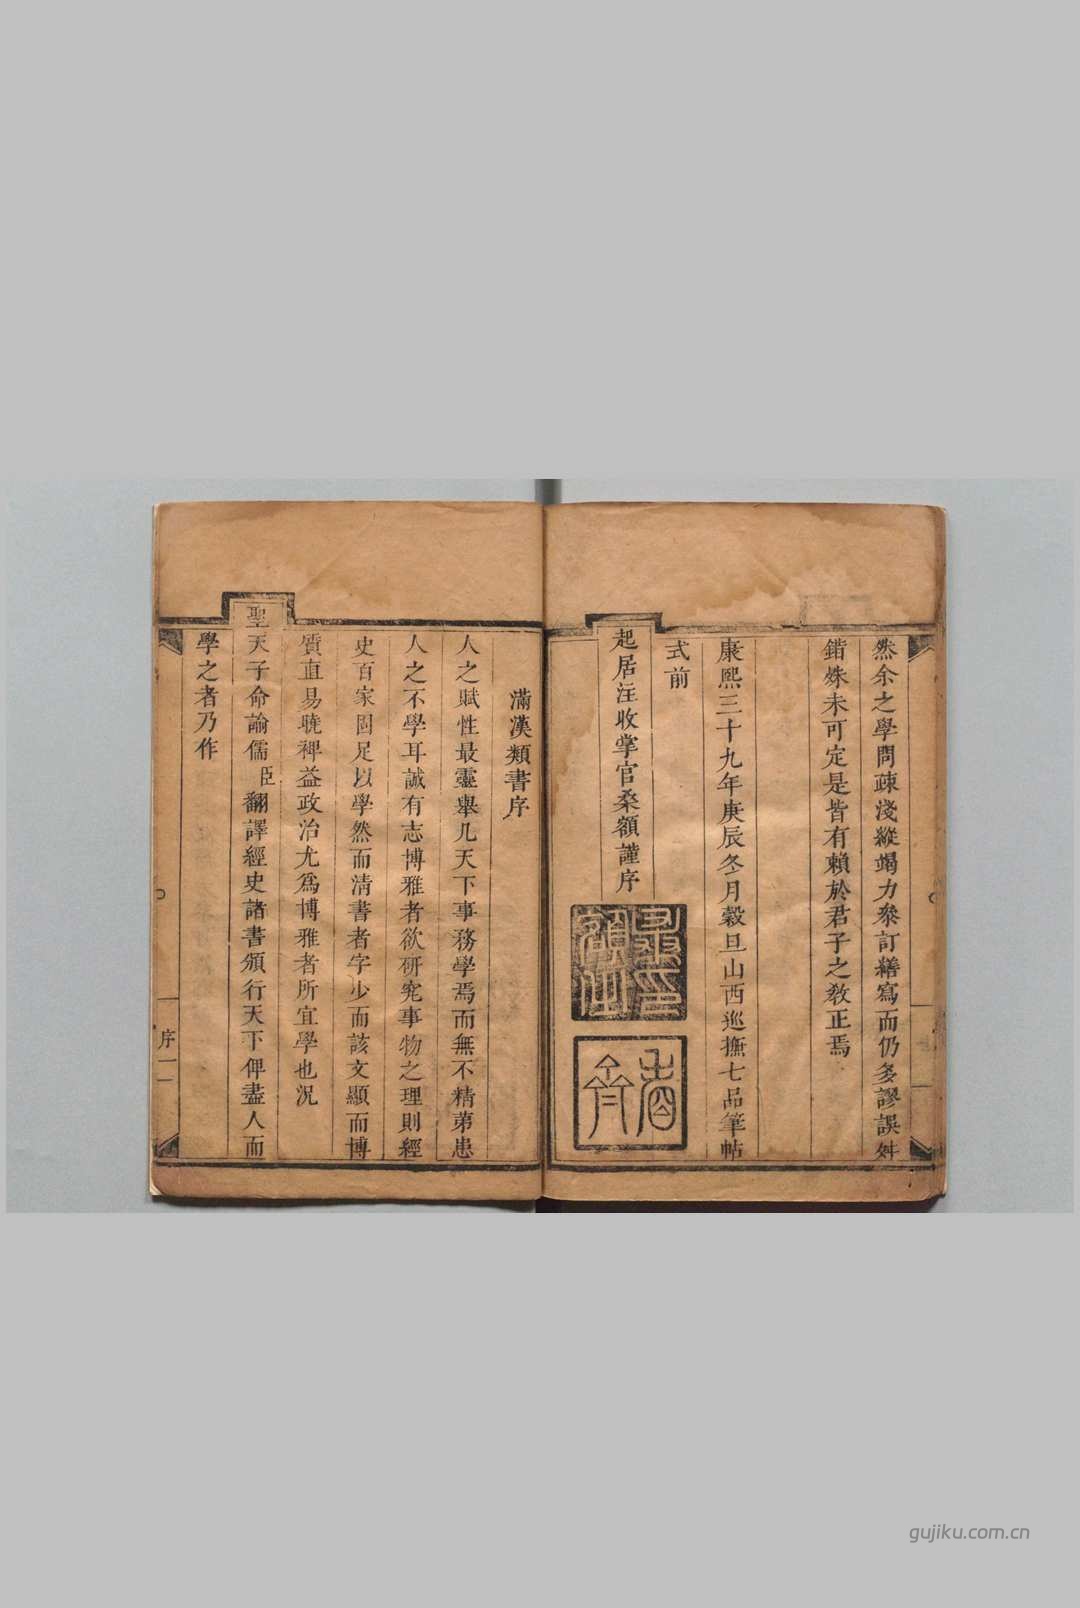 然余之學問疎淺縱竭力叅訂繕寫而仍多謬誤舛
錯殊未可定是皆有賴於君子之教正焉
康熙三十九年庚辰冬月穀旦山西巡撫七品筆帖
式前
起居注收掌官桑額謹序
滿漢類書序
人之賦性最靈舉凡天下事務學焉而無不精第患
人之不學耳誠有志博雅者欲研究事物之理則經
史百家固足以學然而清書者字少而該文顯而博
質直易曉裨益政治尤爲博雅者所宜學也況
聖天子命諭儒臣翻譯經史諸書頒行天下俾盡人而
學之者乃作
序 一
gujiku.com.cn